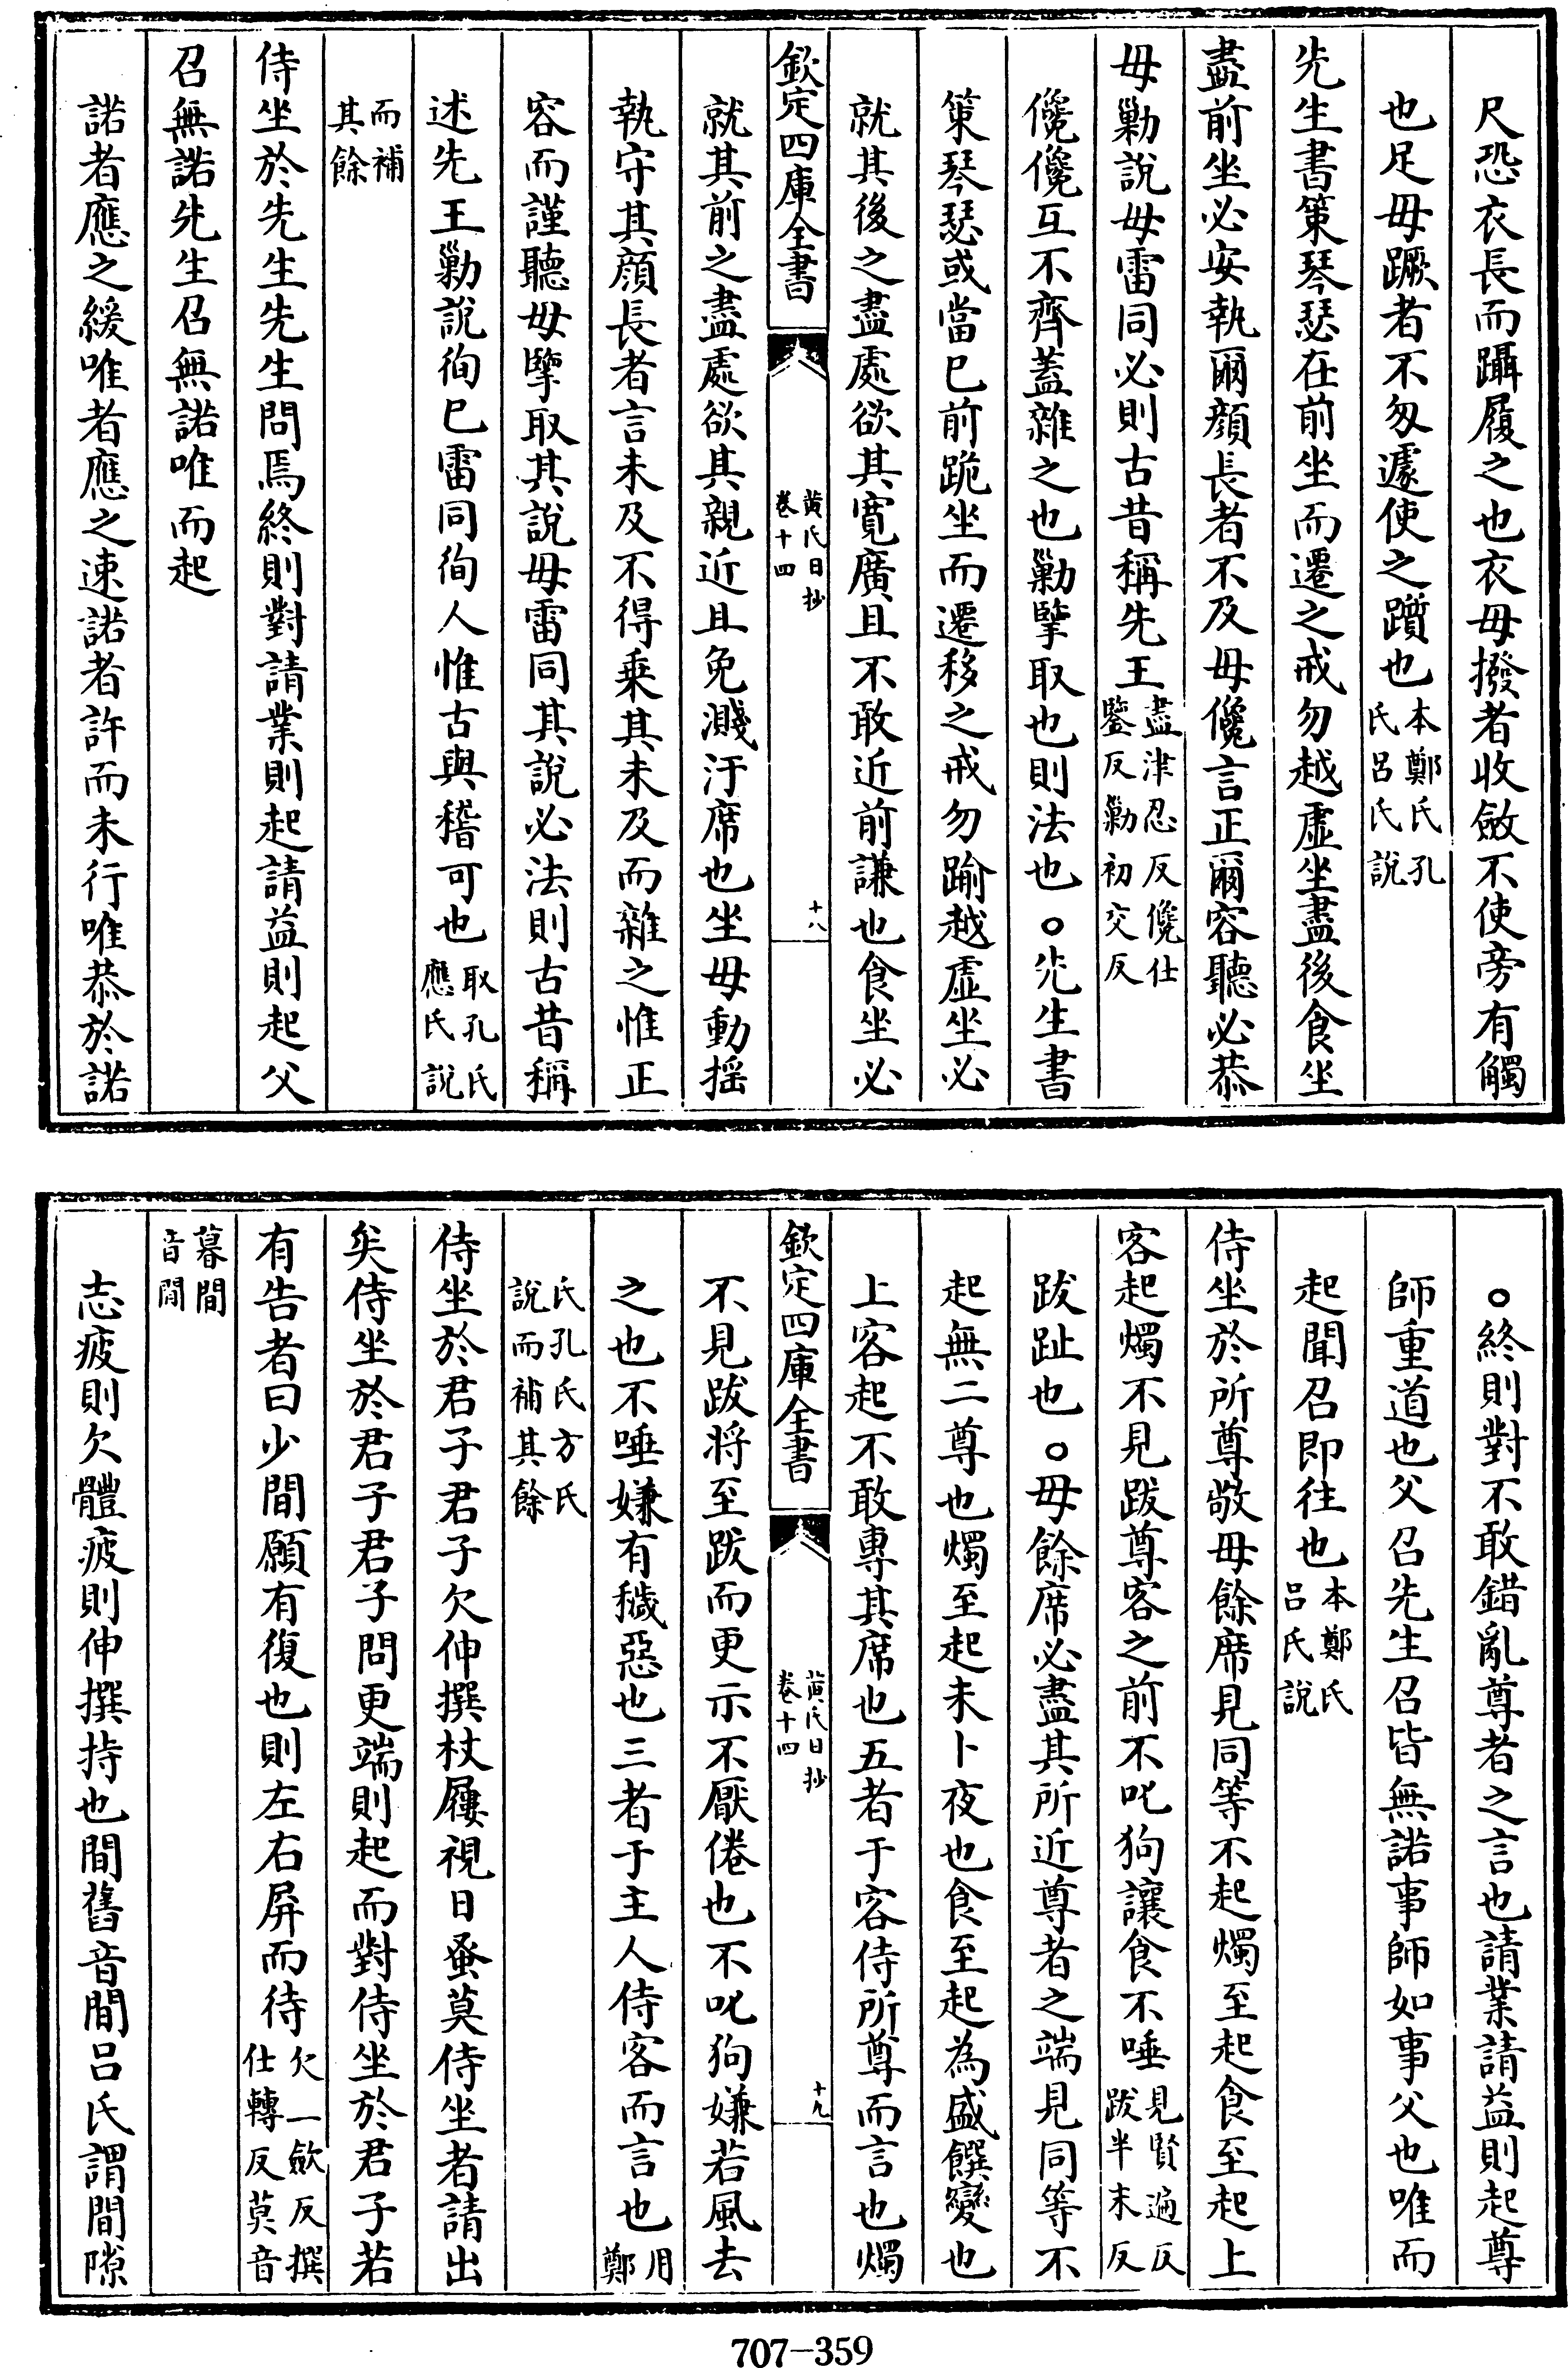 尺恐衣長而躡履之也衣毋撥者收斂不使旁有觸
也足毋蹶者不匆遽使之躓也本鄭氏孔氏呂氏說
先生書策琴瑟在前坐而遷之戒勿越虛坐盡後食坐
盡前坐必安執爾顏長者不及毋儳言正爾容聽必恭
毋勦說毋雷同必則古昔稱先王盡津忍反儳仕鑒反勦初交反
儳儳互不齊蓋雜之也勦擥取也則法也○先生書
策琴瑟或當已前跪坐而遷移之戒勿踰越虛坐必
就其後之盡處欲其寬廣且不敢近前謙也食坐必
欽定四庫全書
黃氏日抄
卷十四
十八
就其前之盡處欲其親近且免濺汙席也坐毋動揺
執守其顔長者言未及不得乗其未及而雜之惟正
容而謹聽毋擥取其說毋雷同其說必法則古昔稱
述先王勦說徇已雷同徇人惟古與稽可也取孔氏應氏說
而補其餘
侍坐於先生先生問焉終則對請業則起請益則起父
召無諾先生召無諾唯而起
諾者應之緩唯者應之速諾者許而未行唯恭於諾
○終則對不敢錯亂尊者之言也請業請益則起尊
師重道也父召先生召皆無諾事師如事父也唯而
起聞召即往也本鄭氏呂氏說
侍坐於所尊敬毋餘席見同等不起燭至起食至起上
客起燭不見跋尊客之前不叱狗讓食不唾見賢遍反跋半末反
跋趾也○毋餘席必盡其所近尊者之端見同等不
起無二尊也燭至起未卜夜也食至起為盛饌變也
上客起不敢專其席也五者于客侍所尊而言也燭
欽定四庫全書
黃氏日抄
卷十四
十九
不見跋将至跋而更示不厭倦也不叱狗嫌若風去
之也不唾嫌有穢惡也三者于主人侍客而言也用鄭
氏孔氏方氏說而補其餘
侍坐於君子君子欠伸撰杖屨視日蚤莫侍坐者請出
矣侍坐於君子君子問更端則起而對侍坐於君子若
有告者曰少間願有復也則左右屏而待欠一歛反撰仕轉反莫音
暮間音閒
志疲則欠體疲則伸撰持也間舊音閒呂氏謂間隙
707-359